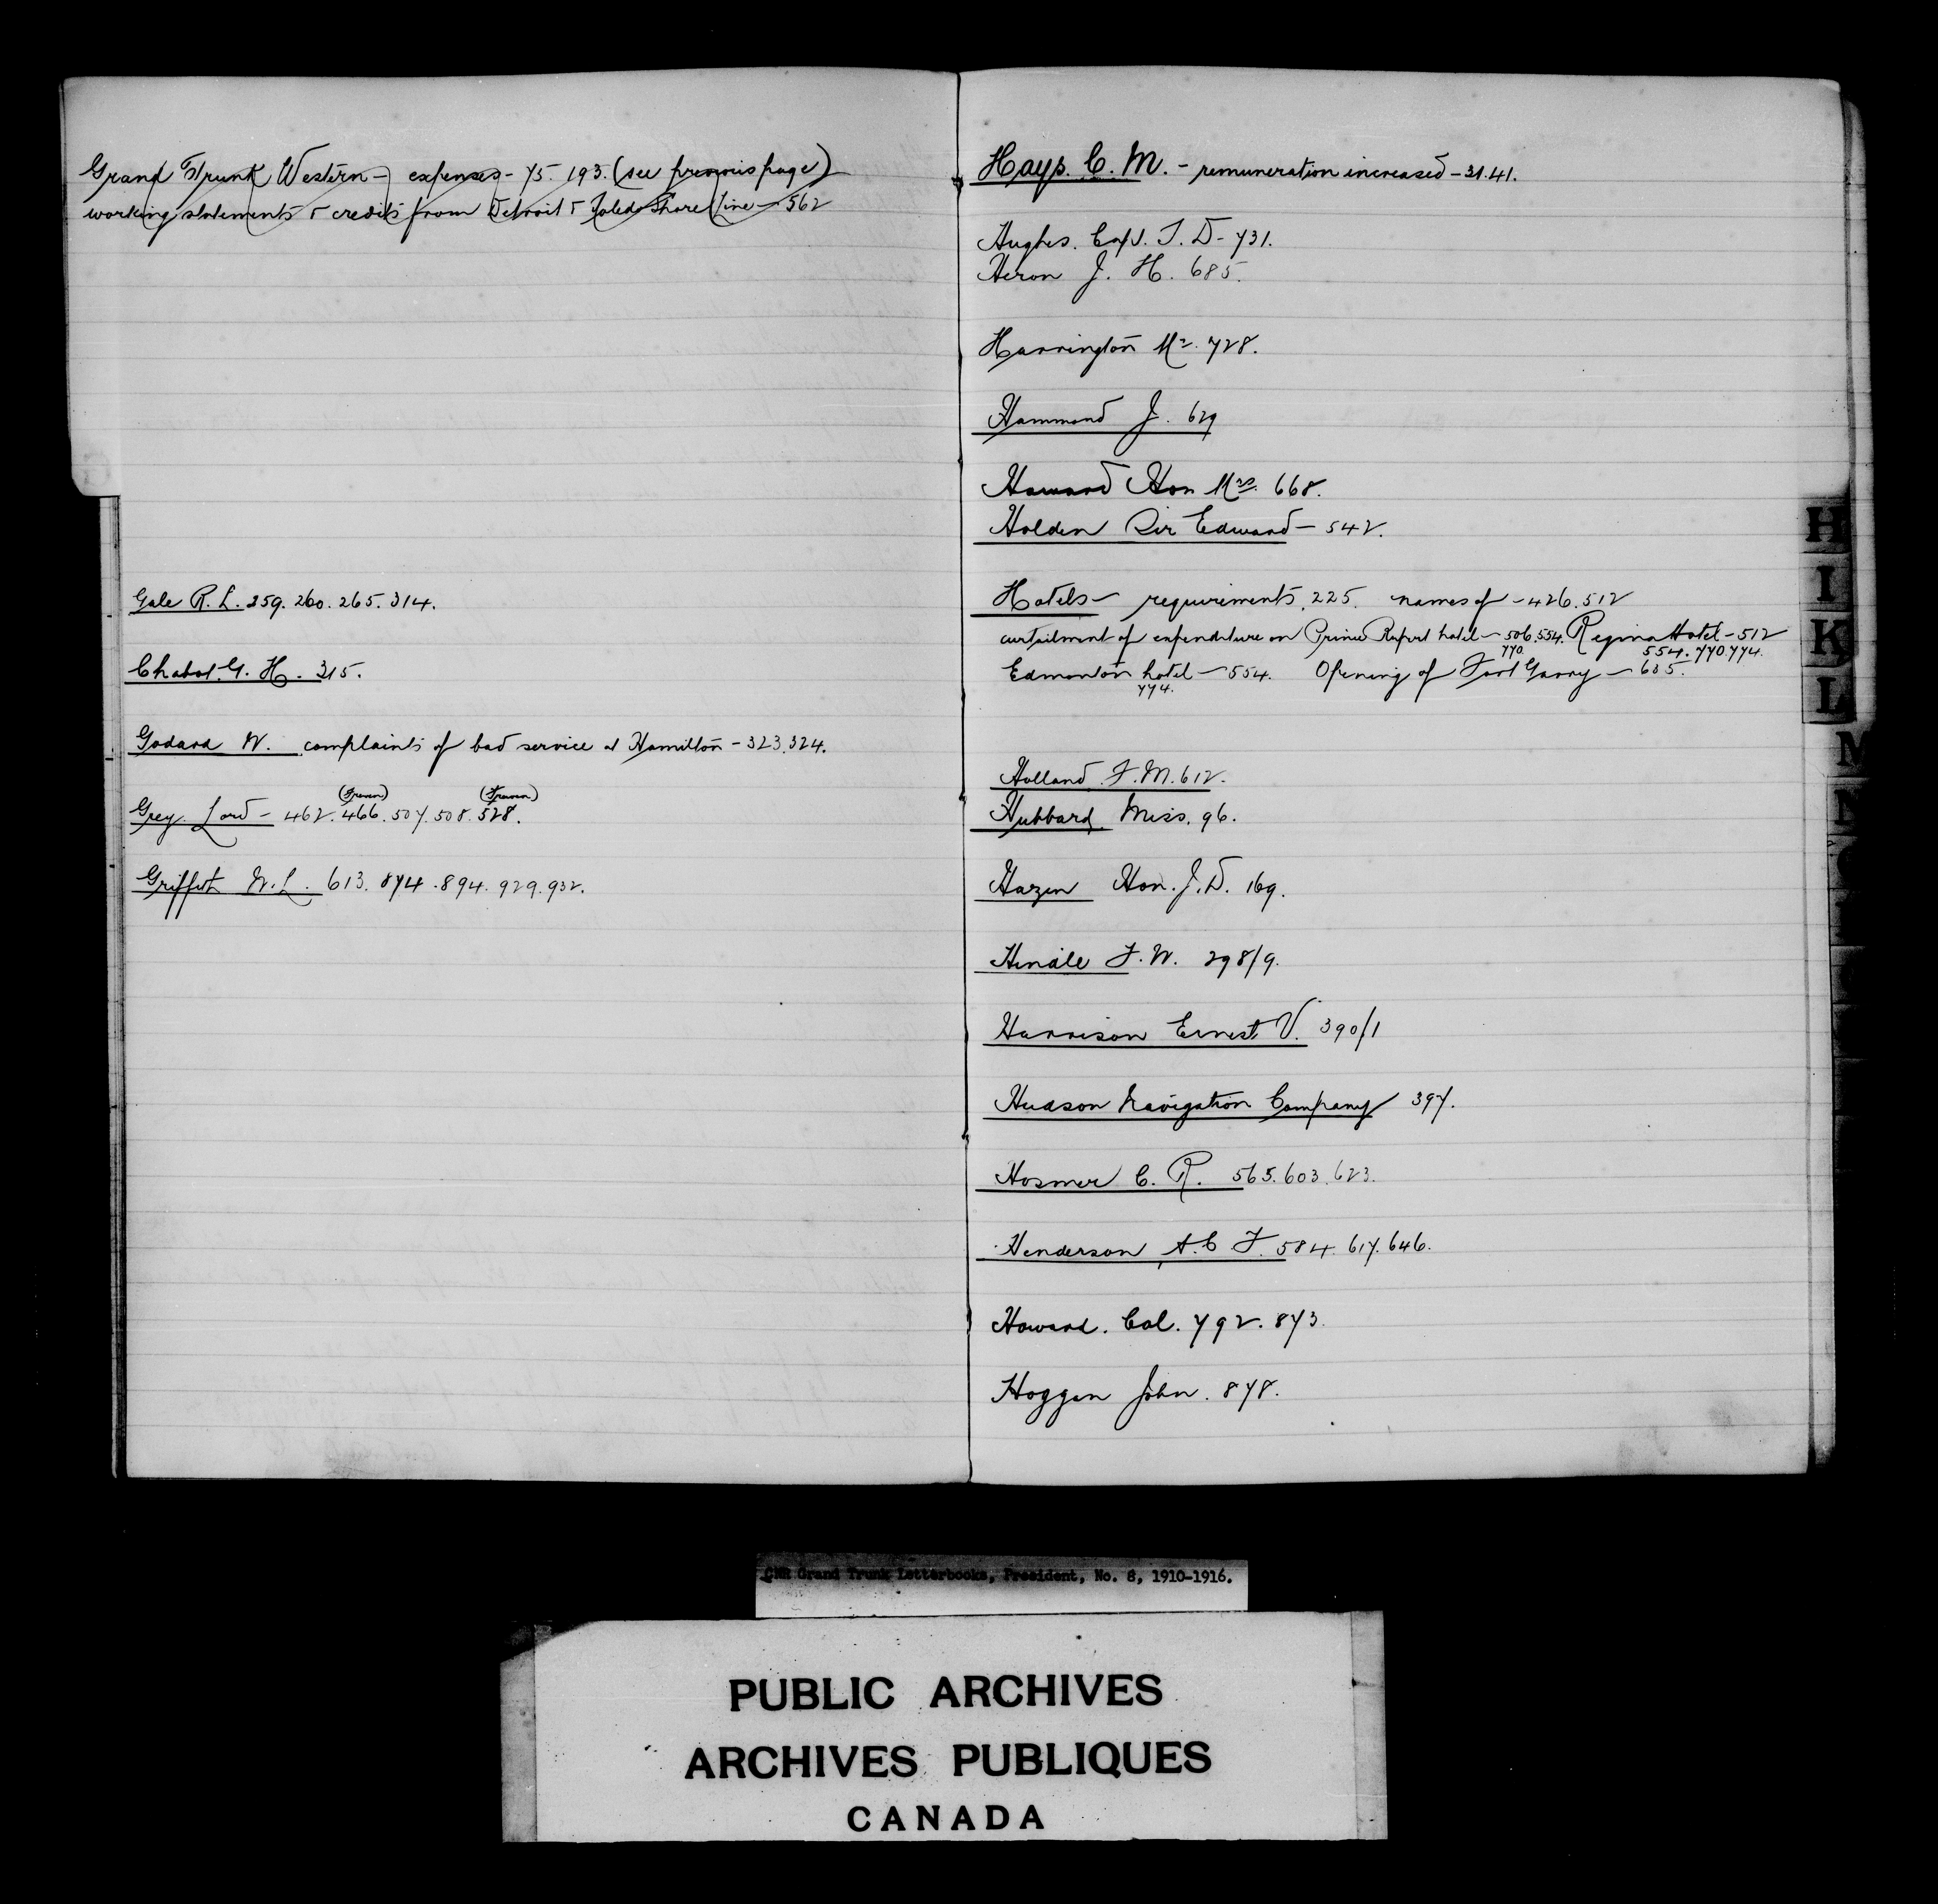 Grand Trunk Western - expenses - 75. 193. (see previous page)
working statements & credits from Detroit & Toledo Shore Line - 562
Gale R. L. 259. 260. 265. 314.
Chabot. G. H. 315.
Godard W. complaints of bad service at Hamilton - 323. 324.
Grey. Lord - 462. 466. 507. 508. 528.
Griffith W. L. 613. 874. 894. 929. 932.
Hays. C. M. - remuneration increased - 31. 41.
Hughes. Capt. T. D - 731.
Heron J. H. 685.
Harrington Mr. 728.
Hammond J. 629
Howard Hon Mrs. 668.
Holden Sir Edward - 542.
Hotels - requirements. 225. names of - 426. 512
curtailment of expenditure on Prince Rupert hotel - 506. 554. Regina Hotel - 512
770. 554. 770. 774.
Edmonton hotel - 554. Opening of Fort Garry - 685.
774.
Holland. F. M. 612.
Hubbard. Miss. 96.
Hazen Hon. J. D. 169.
Hindle F. W. 298/9.
Harrison Ernest V. 390/1
Hudson Navigation Company 397.
Hosmer C. R. 565. 603. 623.
Henderson A. C F. 584. 617. 646.
Howard. Col. 792. 873.
Hoggan John. 878.
H
I
K
L
M
N
CNR Grand Trunk Letterbooks, President, No. 8, 1910-1916.
PUBLIC ARCHIVES
ARCHIVES PUBLIQUES
CANADA